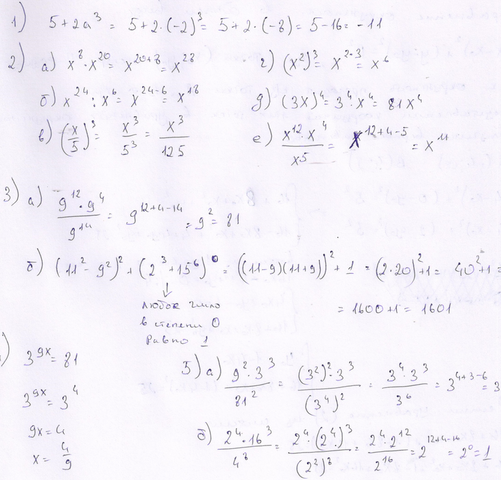 1) 5+2a³ = 5+2·(-2)³ = 5+2·(-8) = 5-16 = -11
2) а) x⁸·x²⁰ = x²⁰⁺⁸ = x²⁸
г) (x²)³ = x²·³ = x⁶
б) x²⁴ : x⁶ = x²⁴⁻⁶ = x¹⁸
д) (3x)⁴ = 3⁴·x⁴ = 81x⁴
в) (x/5)³ = x³/5³ = x³/125
е) x¹²·x⁴/x⁵ = x¹²⁺⁴⁻⁵ = x¹¹
3) а) 9¹²·9⁴/9¹⁴ = 9¹²⁺⁴⁻¹⁴ = 9² = 81
б) (11²-9²)² + (2³+15⁶)⁰ = ((11-9)(11+9))² + 1 = (2·20)²+1 = 40²+1 =
↓
любое число
в степени 0
равно 1
= 1600+1 = 1601
) 3⁹ˣ = 81
3⁹ˣ = 3⁴
9x = 4
x = 4/9
5) а) 9²·3³/81² = (3²)²·3³/(3⁴)² = 3⁴·3³/3⁶ = 3⁴⁺³⁻⁶ = 3
б) 2⁴·16³/4⁸ = 2⁴·(2⁴)³/(2²)⁸ = 2⁴·2¹²/2¹⁶ = 2¹²⁺⁴⁻¹⁶ = 2⁰ = 1